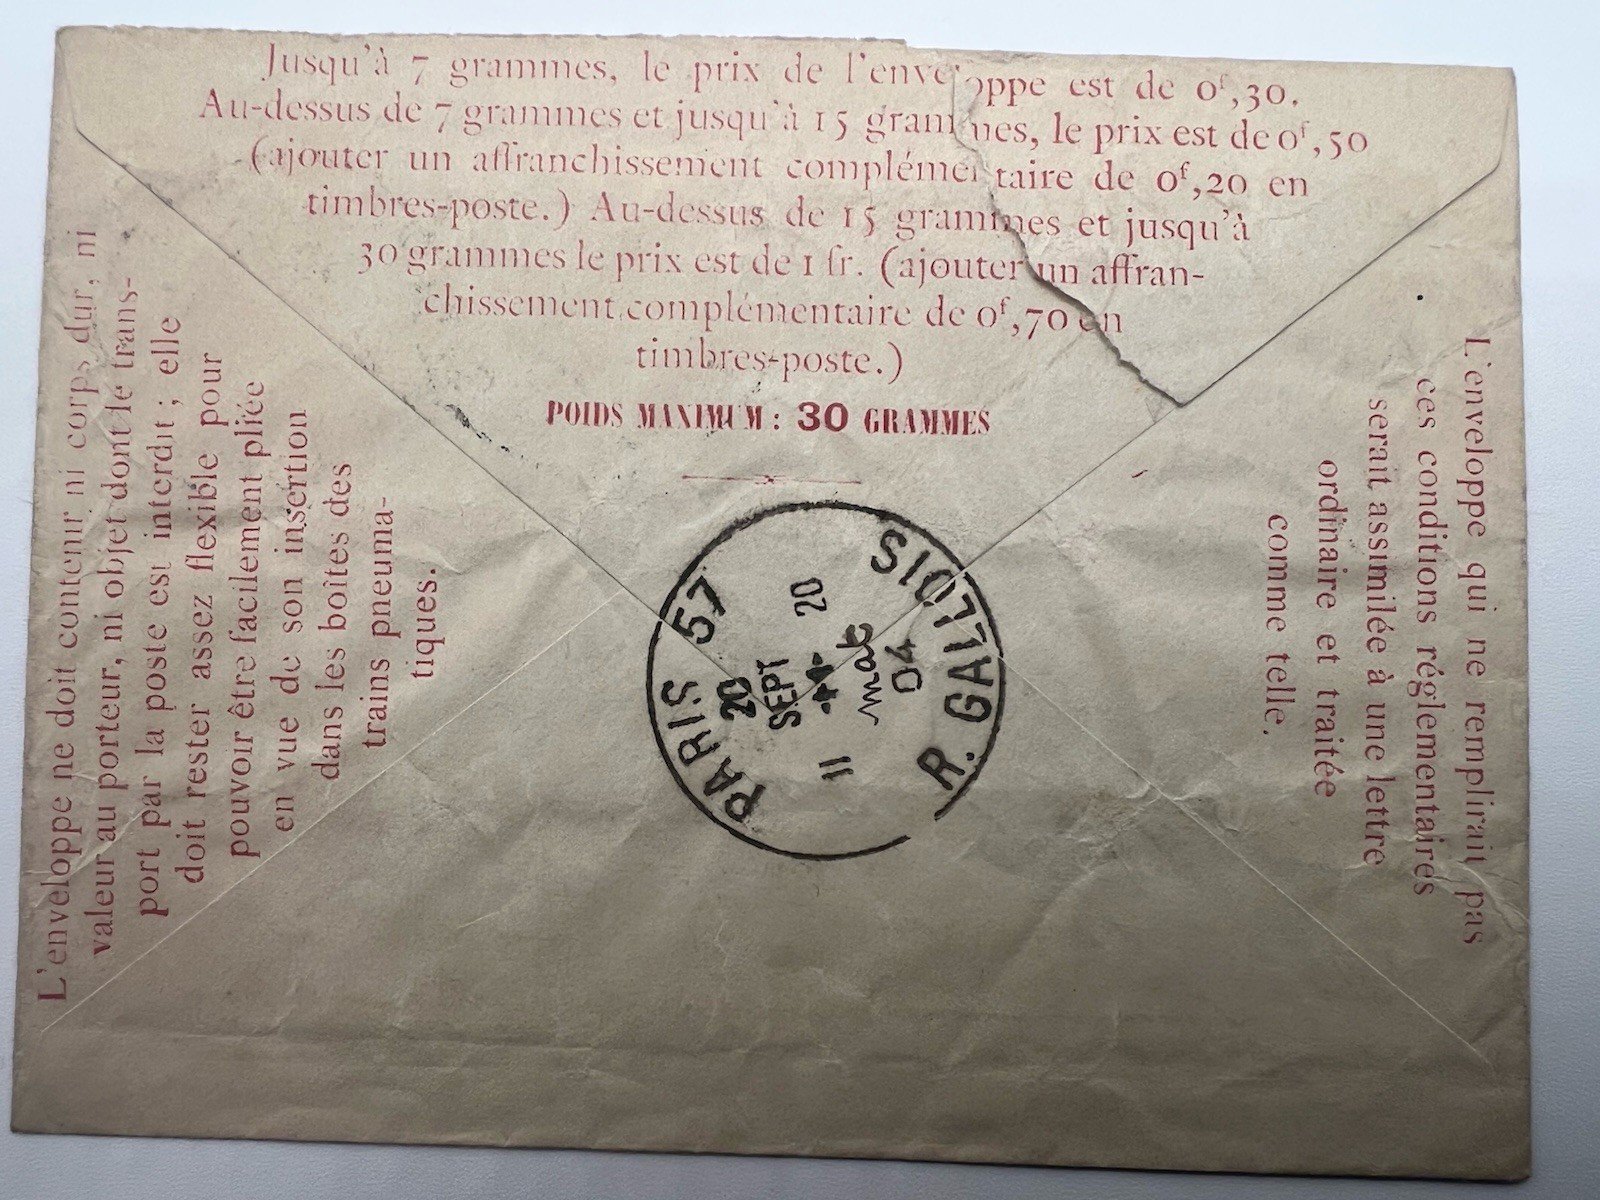 Jusqu'à 7 grammes, le prix de l'enveloppe est de 0f,30.
Au-dessus de 7 grammes et jusqu'à 15 grammes, le prix est de 0f,50
(ajouter un affranchissement complémentaire de 0f,20 en
timbres-poste.) Au-dessus de 15 grammes et jusqu'à
30 grammes le prix est de 1 fr. (ajouter un affran-
chissement complémentaire de 0f,70 en
timbres-poste.)
POIDS MAXIMUM : 30 GRAMMES
L'enveloppe ne doit contenir ni corps dur, ni
valeur au porteur, ni objet dont le trans-
port par la poste est interdit ; elle
doit rester assez flexible pour
pouvoir être facilement pliée
en vue de son insertion
dans les boîtes des
trains pneuma-
tiques.
L'enveloppe qui ne remplirait pas
ces conditions réglementaires
serait assimilée à une lettre
ordinaire et traitée
comme telle.
PARIS 57
20
SEPT
11 20
04
R. GALLOIS